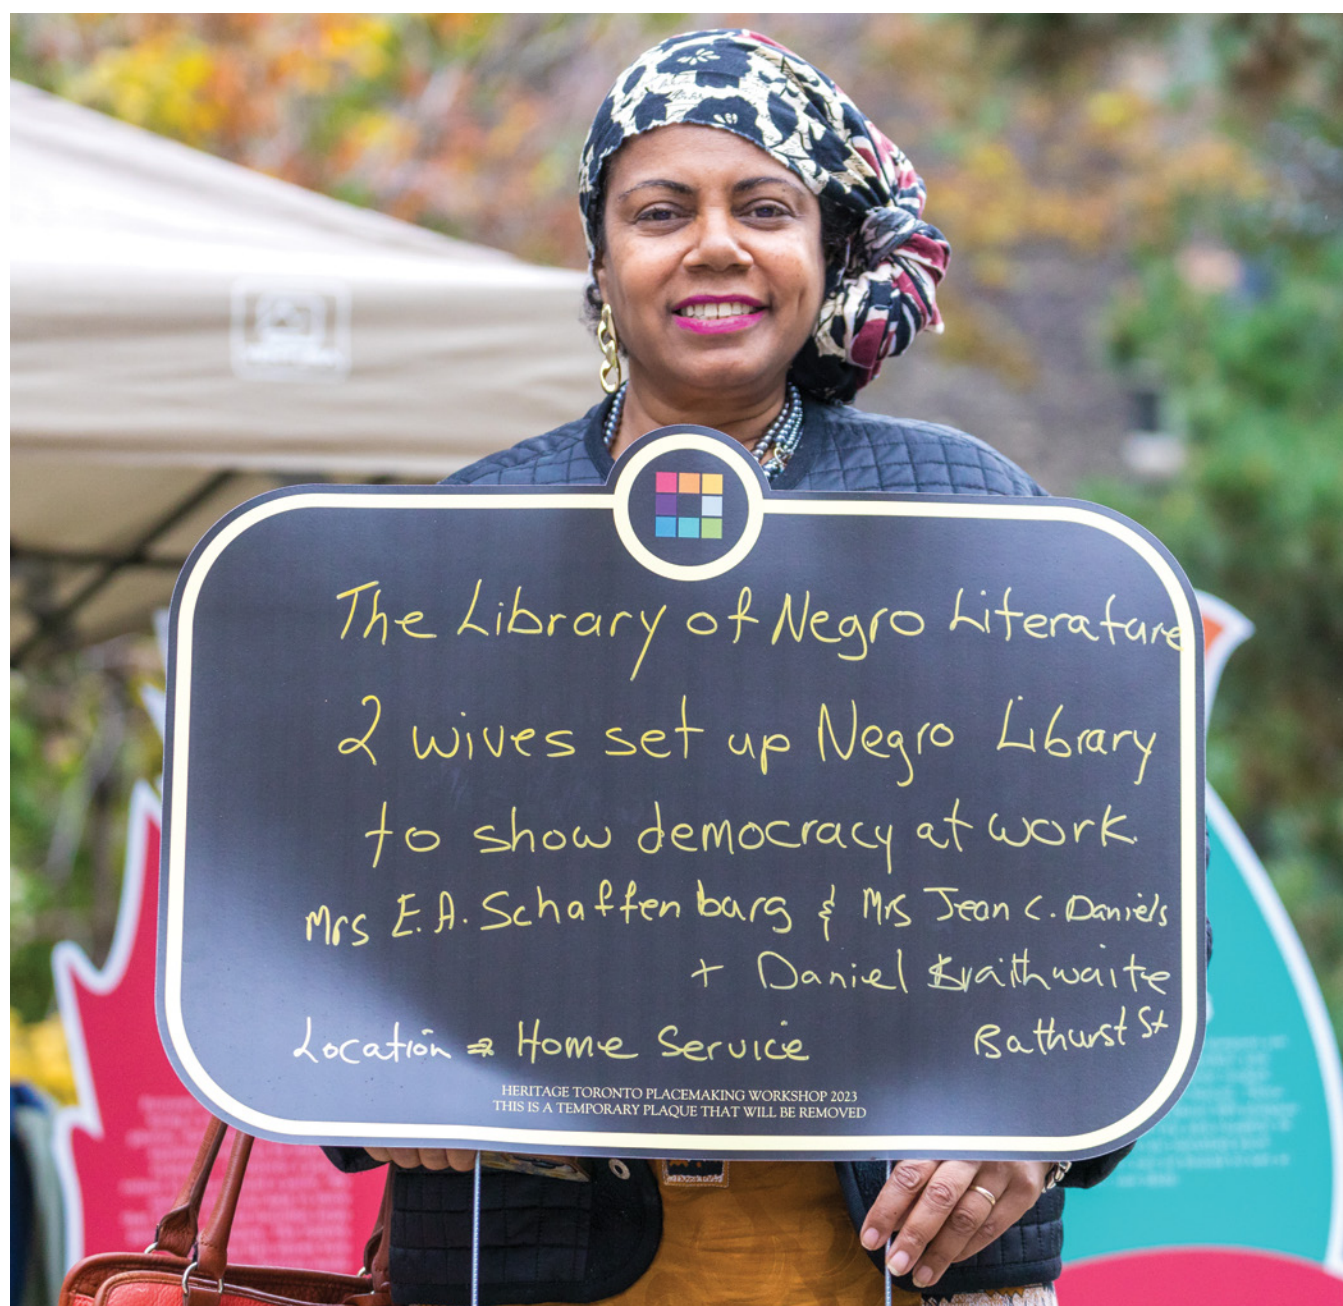 The Library of Negro Literature
2 wives set up Negro Library
to show democracy at work.
Mrs E.A. Schaffenburg & Mrs Jean C. Daniels
+ Daniel Braithwaite
Location → Home Service Bathurst St
HERITAGE TORONTO PLACEMAKING WORKSHOP 2023
THIS IS A TEMPORARY PLAQUE THAT WILL BE REMOVED